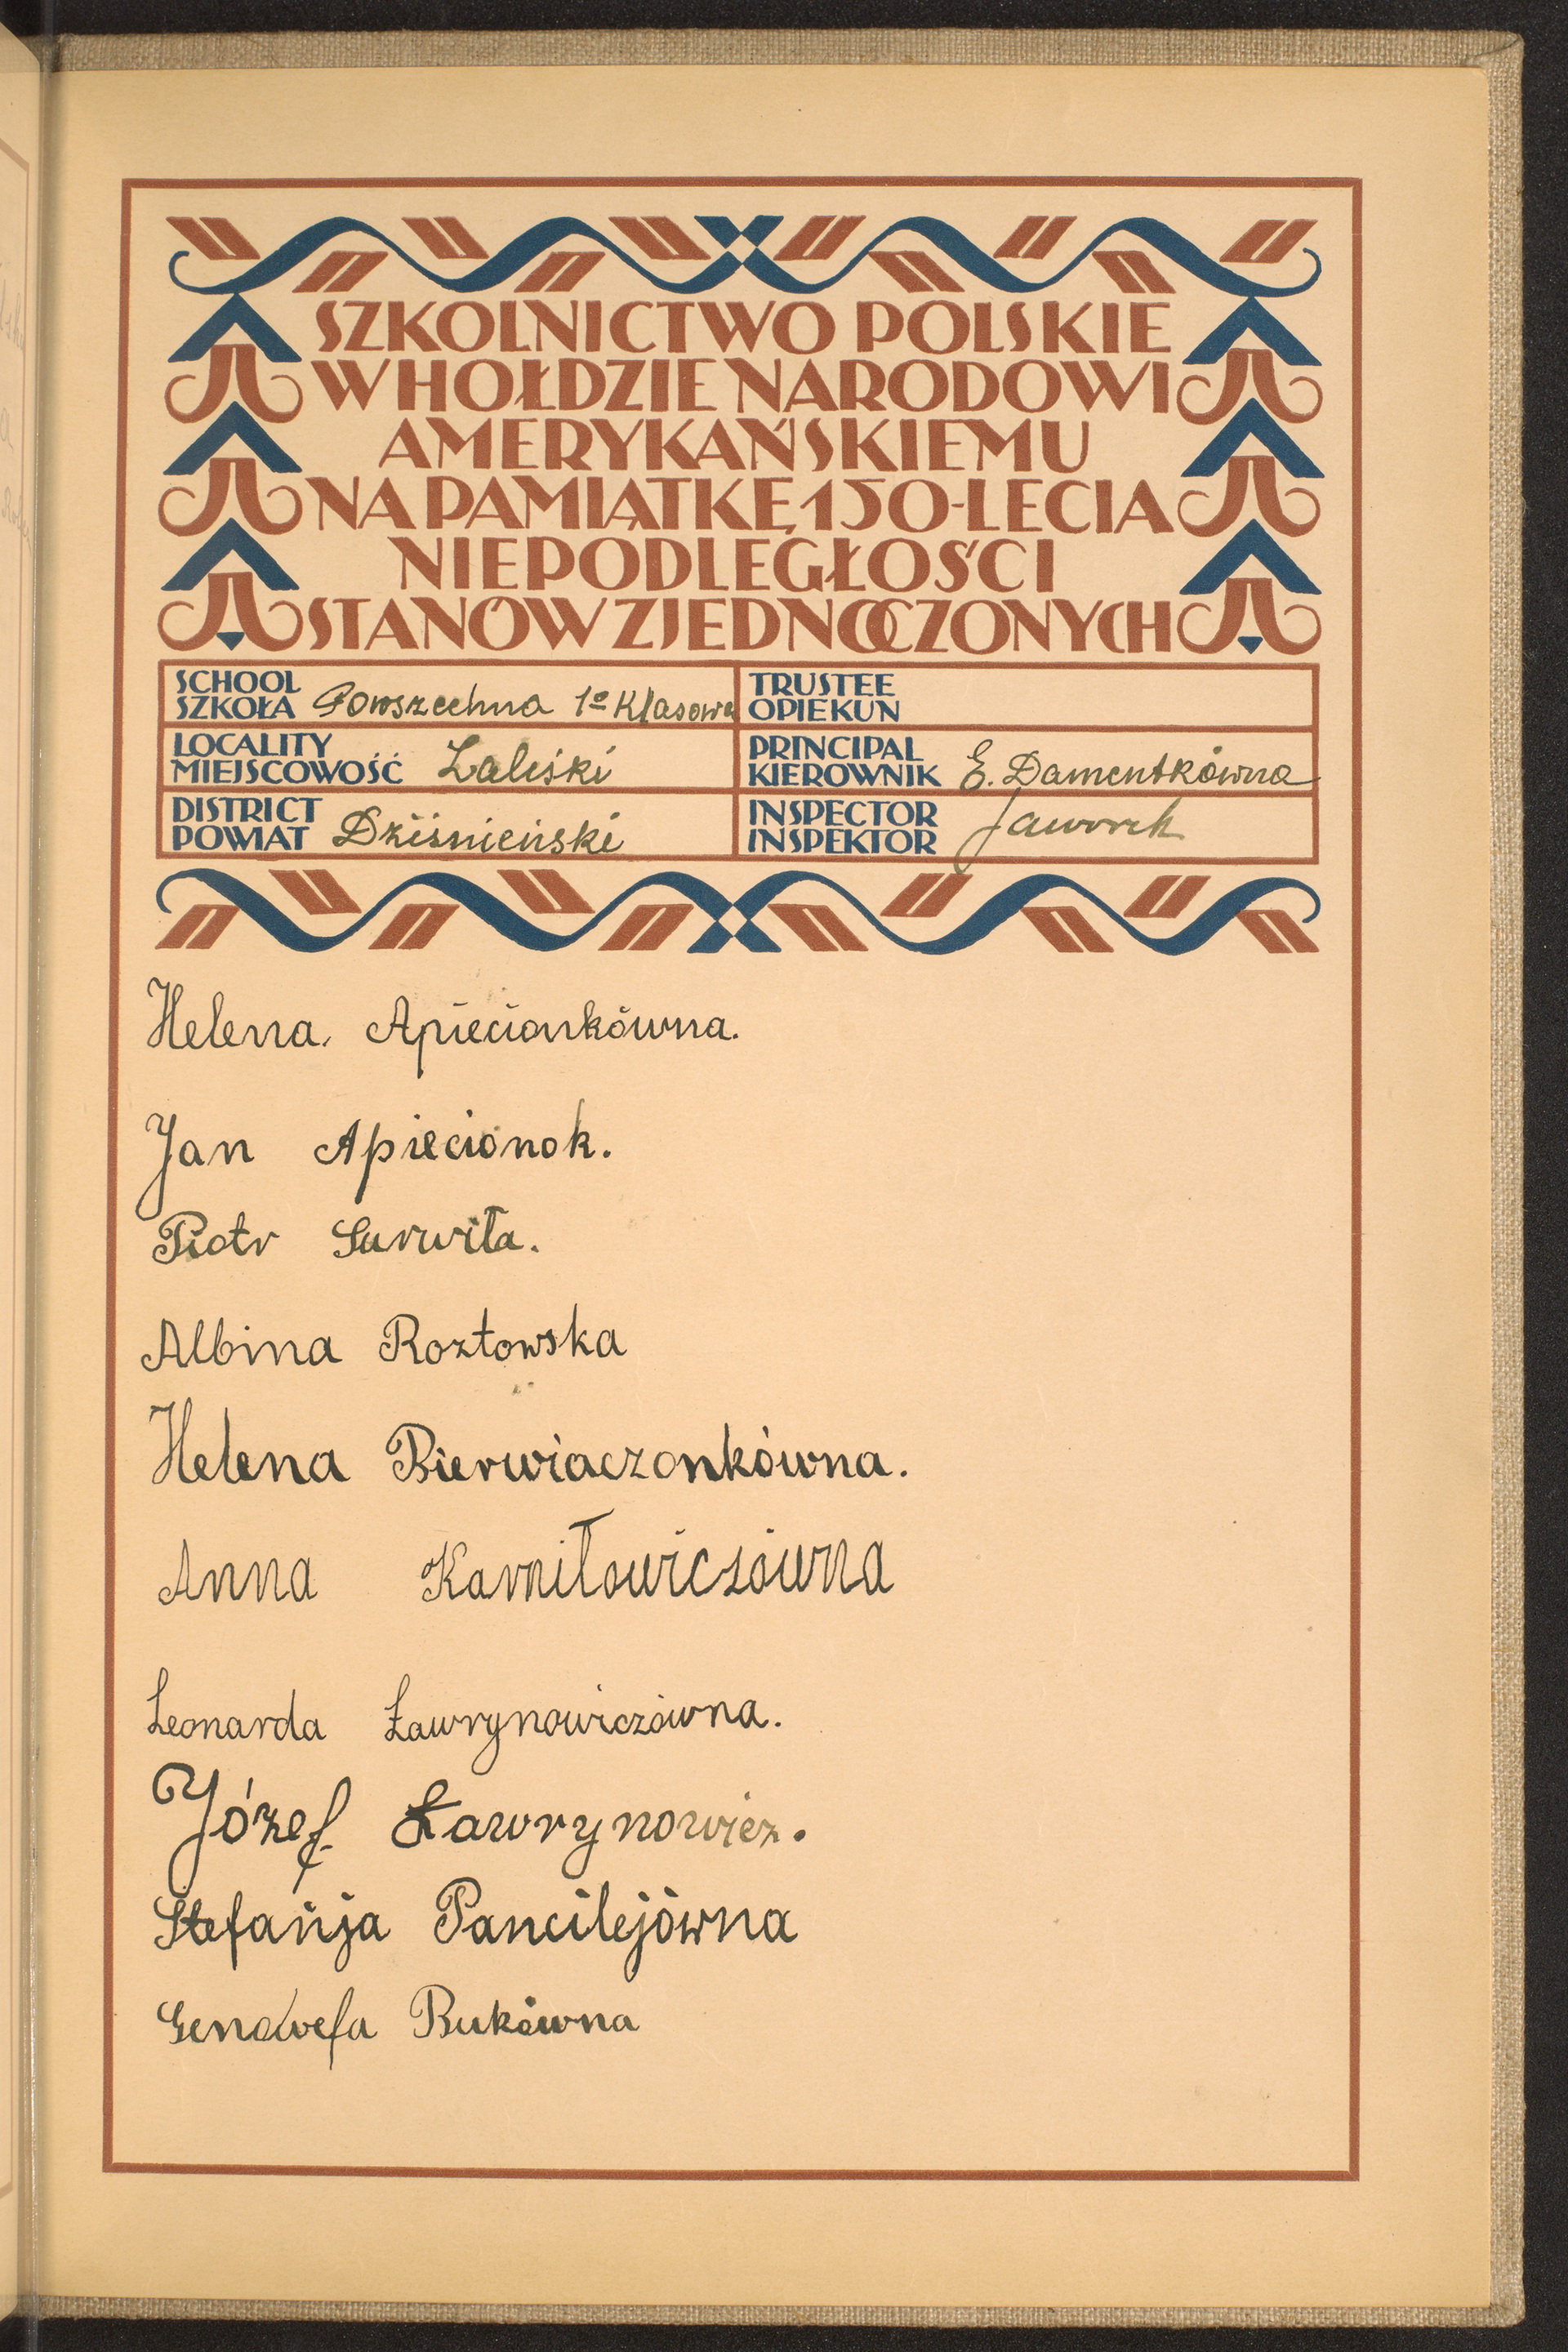 SZKOLNICTWO POLSKIE
W HOŁDZIE NARODOWI
AMERYKAŃSKIEMU
NA PAMIĄTKĘ 150-LECIA
NIEPODLEGŁOŚCI
STANÓW ZJEDNOCZONYCH
SCHOOL
SZKOŁA Powszechna 1º Klasowa
TRUSTEE
OPIEKUN
LOCALITY
MIEJSCOWOŚĆ Zaliski
PRINCIPAL
KIEROWNIK E. Damentkówna
DISTRICT
POWIAT Dziśnieński
INSPECTOR
INSPEKTOR Jaworek
Helena Apiecionkówna.
Jan Apiecionok.
Piotr Surwiła.
Albina Rozłowska
Helena Bierwiaczonkówna.
Anna Karniłowiczówna
Leonarda Ławrynowiczówna.
Józef Ławrynowicz.
Stefańja Pancilejówna
Genowefa Bukówna